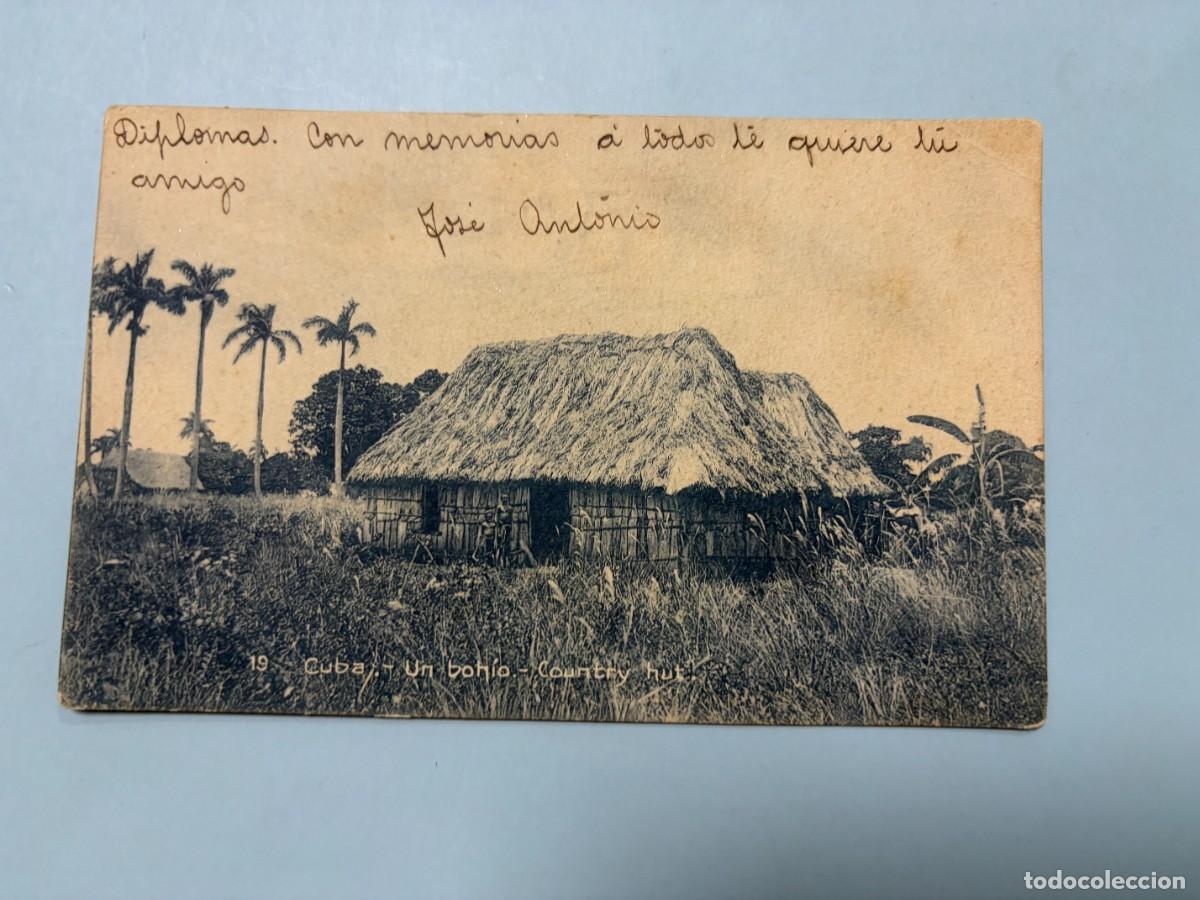 Diplomas. Con memorias á todos té quiere tú
amigo
José António
19 Cuba.- Un bohío.- Country hut.
todocoleccion